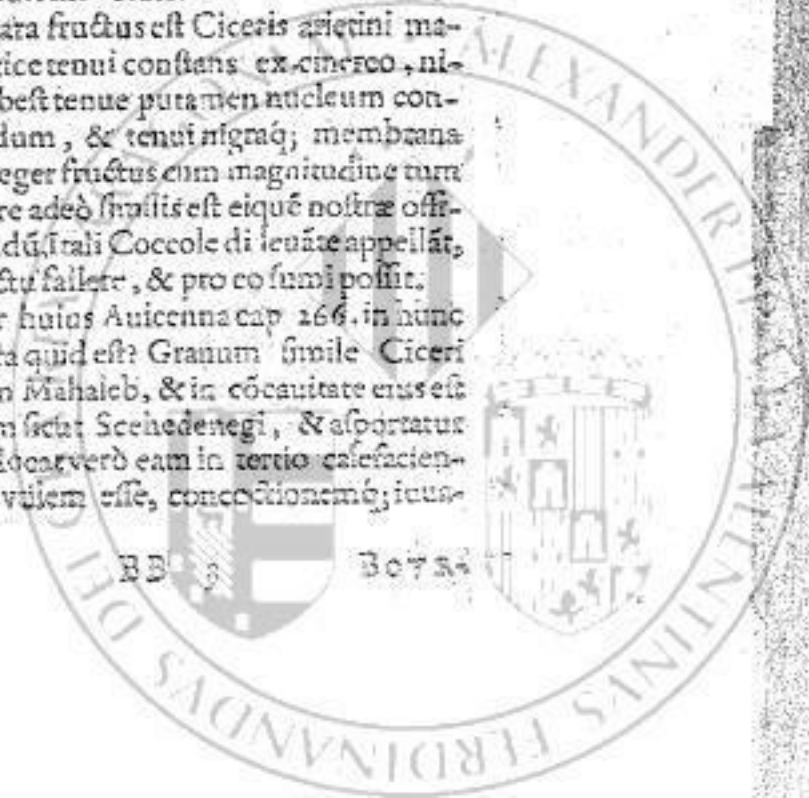 ara fructus est Ciceris arietini ma-
ice tenui constans ex cinereo, ni-
best tenue putamen nucleum con-
dum, & tenui nigraq; membrana
eger fructus cum magnitudine tum
re adeò similis est eiquē nostræ offi-
dũ, Itali Coccole di leuāte appellāt,
ctu fallere, & pro eo sumi possit.
r huius Auicenna cap 266. in hunc
ta quid est? Granum simile Ciceri
n Mahaleb, & in cōcauitate eius est
m sicut Scehedenegi, & asportatur
locat verò eam in tertio calefacien-
vtilem esse, concoctionemq; iuua-
BB
ALEXANDER
VALENTINVS FERDINANDVS DEI